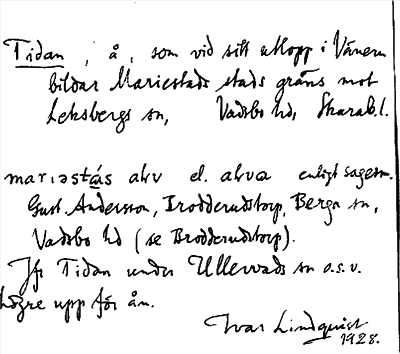 Tidan, å, som vid sitt utlopp i Vänern
bildar Mariestads stads gräns mot
Leksbergs sn, Vadsbo hd, Skarab. l.
marıəstás akv el. akvα enligt sagesm.
Gust. Andersson, Brodderudstorp, Berga sn,
Vadsbo hd (se Brodderudstorp).
Jfr Tidan under Ullervads sn o.s.v.
högre upp för ån.
Ivar Lindquist
1928.